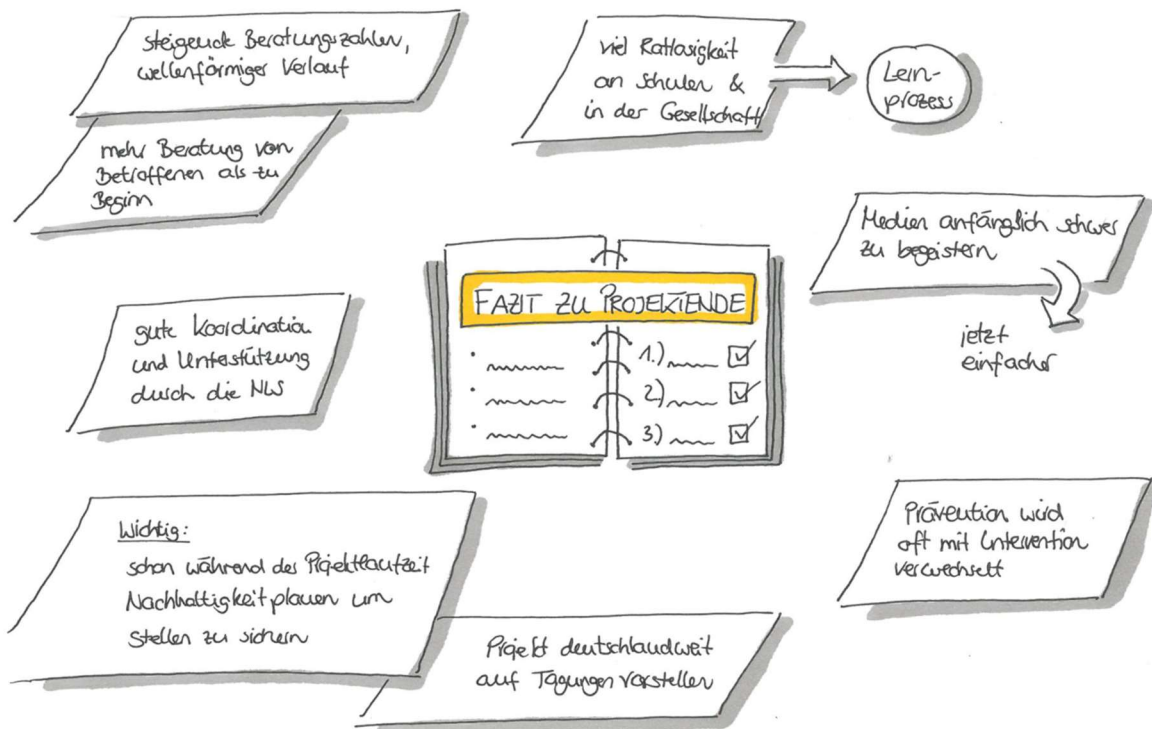 steigende Beratungszahlen,
wellenförmiger Verlauf
mehr Beratung von
Betroffenen als zu
Beginn
viel Ratlosigkeit
an Schulen &
in der Gesellschaft
Lern-
prozess
Medien anfänglich schwer
zu begeistern
jetzt
einfacher
FAZIT ZU PROJEKTENDE
1.)
2.)
3.)
gute Koordination
und Unterstützung
durch die NLS
Wichtig:
schon während der Projektlaufzeit
Nachhaltigkeit planen um
Stellen zu sichern
Projekt deutschlandweit
auf Tagungen vorstellen
Prävention wird
oft mit Intervention
verwechselt